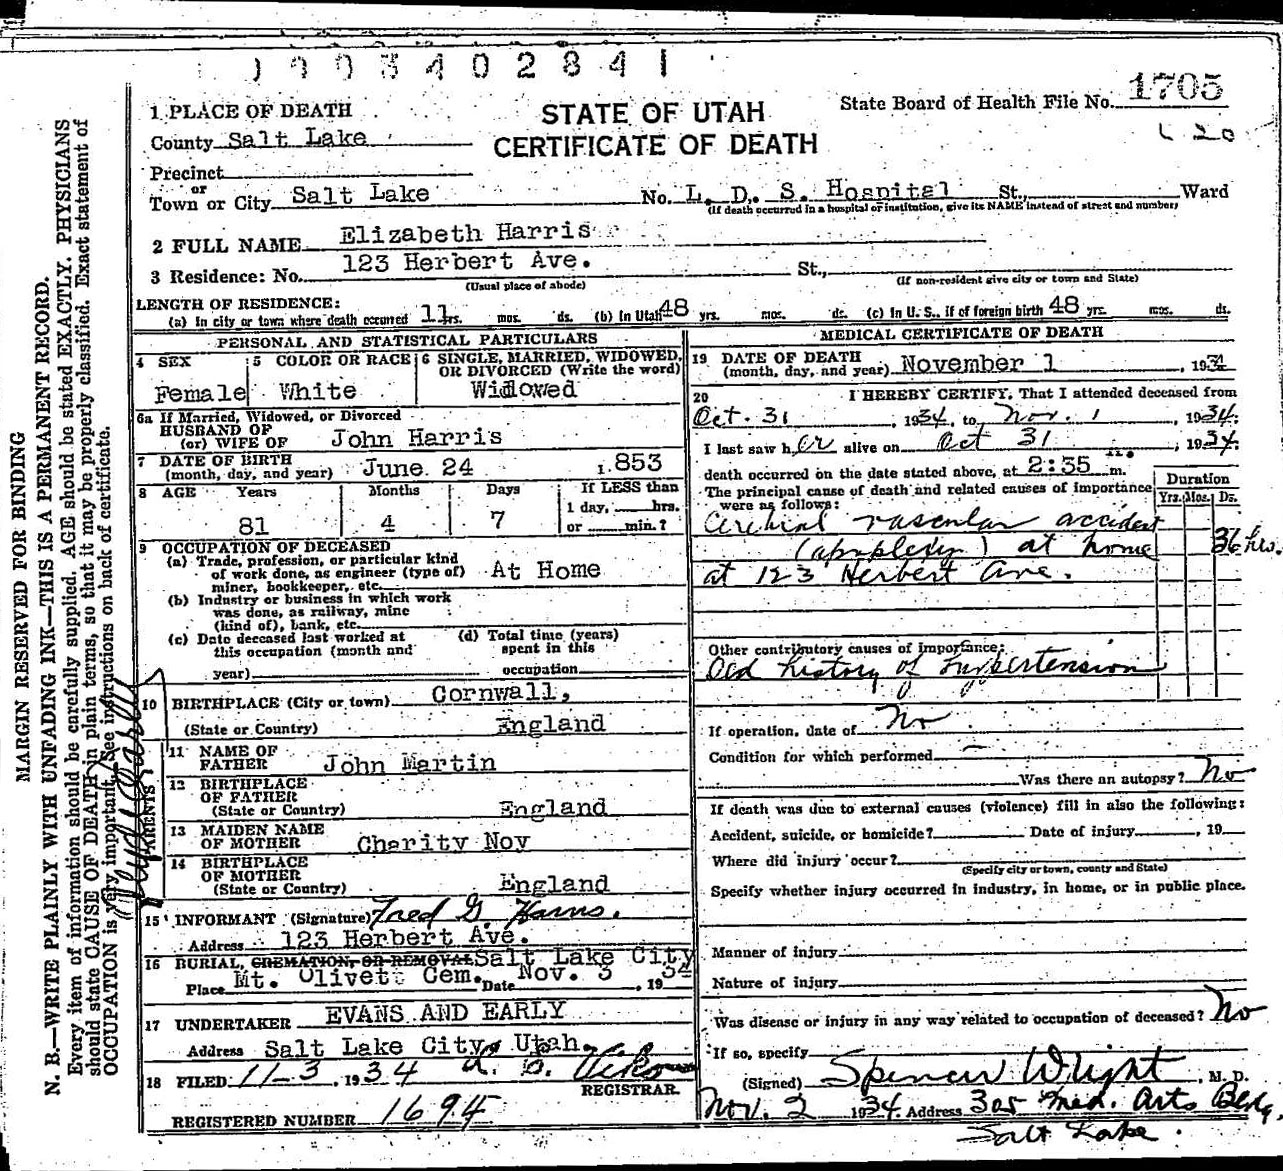 1903402841
1 PLACE OF DEATH
County Salt Lake
STATE OF UTAH
CERTIFICATE OF DEATH
State Board of Health File No. 1705
Precinct
or
Town or City Salt Lake No. L. D. S. Hospital St., Ward
(If death occurred in a hospital or institution, give its NAME instead of street and number)
2 FULL NAME Elizabeth Harris
3 Residence: No. 123 Herbert Ave. St.,
(Usual place of abode) (If non-resident give city or town and State)
LENGTH OF RESIDENCE:
(a) In city or town where death occurred 11 yrs. mos. ds. (b) In Utah 48 yrs. mos. ds. (c) In U. S., if of foreign birth 48 yrs. mos. ds.
PERSONAL AND STATISTICAL PARTICULARS
4 SEX Female
5 COLOR OR RACE White
6 SINGLE, MARRIED, WIDOWED, OR DIVORCED (Write the word)
Widowed
6a If Married, Widowed, or Divorced
HUSBAND OF
(or) WIFE OF John Harris
7 DATE OF BIRTH
(month, day, and year) June 24 1853
8 AGE Years Months Days If LESS than
1 day, hrs.
or min.?
81 4 7
9 OCCUPATION OF DECEASED
(a) Trade, profession, or particular kind
of work done, as engineer (type of)
miner, bookkeeper, etc. At Home
(b) Industry or business in which work
was done, as railway, mine
(kind of), bank, etc.
(c) Date deceased last worked at
this occupation (month and
year)
(d) Total time (years)
spent in this
occupation
10 BIRTHPLACE (City or town) Cornwall,
(State or Country) England
PARENTS
11 NAME OF
FATHER John Martin
12 BIRTHPLACE
OF FATHER
(State or Country) England
13 MAIDEN NAME
OF MOTHER Charity Noy
14 BIRTHPLACE
OF MOTHER
(State or Country) England
15 INFORMANT (Signature) Fred G. Harris.
Address 123 Herbert Ave.
16 BURIAL, CREMATION, OR REMOVAL Salt Lake City
Place Mt. Olivett Cem. Date Nov. 3, 1934
17 UNDERTAKER EVANS AND EARLY
Address Salt Lake City, Utah.
18 FILED 11-3, 1934
REGISTRAR.
REGISTERED NUMBER 1694
MEDICAL CERTIFICATE OF DEATH
19 DATE OF DEATH
(month, day, and year) November 1, 1934
20 I HEREBY CERTIFY, That I attended deceased from
Oct. 31, 1934, to Nov. 1, 1934.
I last saw her alive on Oct 31, 1934.
death occurred on the date stated above, at 2:35 m.
The principal cause of death and related causes of importance
were as follows:
Duration
Yrs. Mos. Ds.
Cerebral vascular accident
(apoplexy) at home 36 hrs.
at 123 Herbert Ave.
Other contributory causes of importance:
Old history of hypertension
If operation, date of No
Condition for which performed —
Was there an autopsy? No
If death was due to external causes (violence) fill in also the following:
Accident, suicide, or homicide? Date of injury, 19
Where did injury occur?
(Specify city or town, county and State)
Specify whether injury occurred in industry, in home, or in public place.
Manner of injury
Nature of injury
Was disease or injury in any way related to occupation of deceased? No
If so, specify
(Signed) Spencer Wright, M. D.
Nov. 2 1934. Address 305 Med. Arts Bldg,
Salt Lake.
MARGIN RESERVED FOR BINDING
N. B.—WRITE PLAINLY WITH UNFADING INK—THIS IS A PERMANENT RECORD.
Every item of information should be carefully supplied. AGE should be stated EXACTLY. PHYSICIANS
should state CAUSE OF DEATH in plain terms, so that it may be properly classified. Exact statement of
OCCUPATION is very important. See instructions on back of certificate.